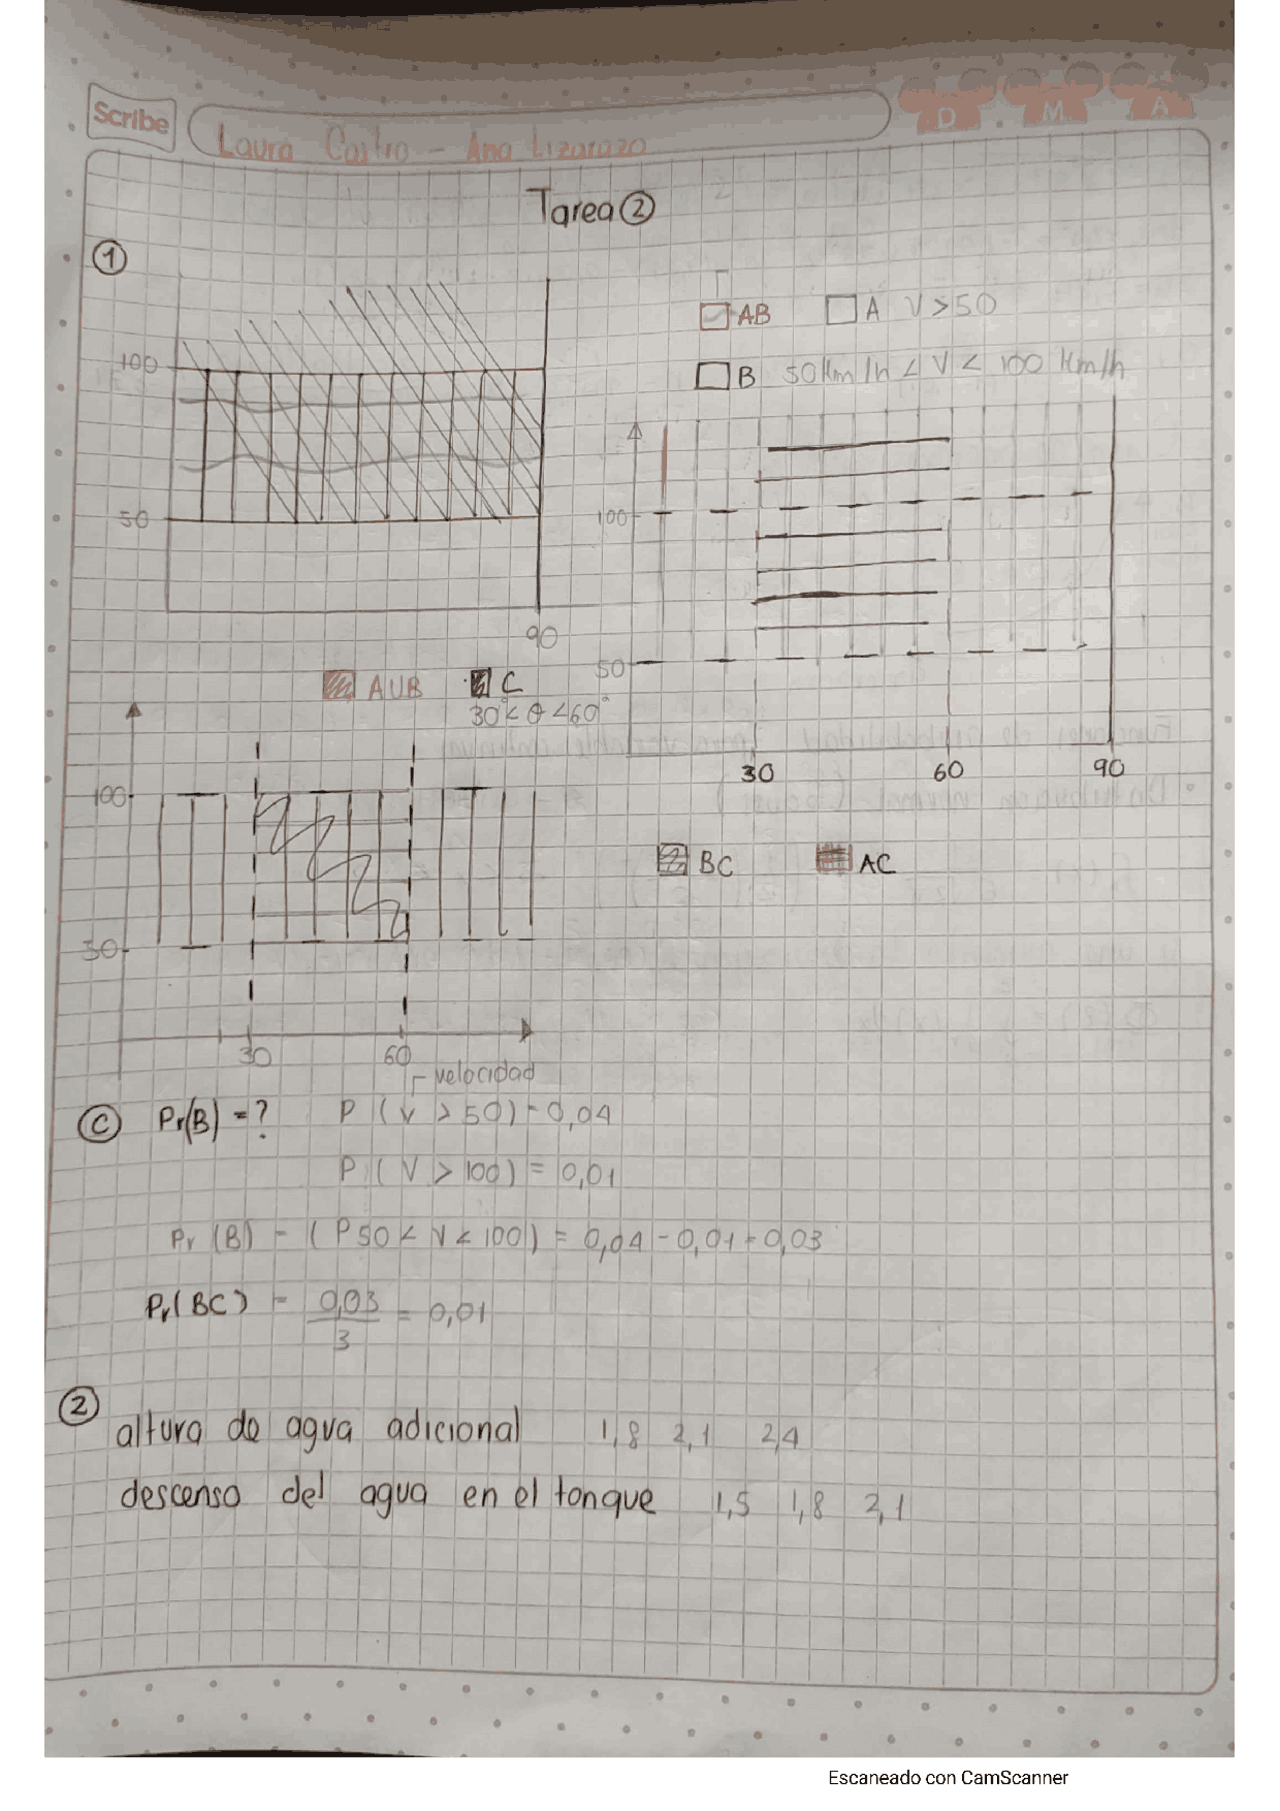 Scribe
D M A
Laura Castro - Ana Lizarazo
Tarea ②
①
AB A V > 50
B 50 Km/h < V < 100 Km/h
100
50
90
100
50
30 60 90
AUB C
30° < θ < 60°
100
50
30 60
velocidad
BC AC
Ⓒ Pr(B) = ? P ( V > 50) = 0,04
P ( V > 100) = 0,01
Pr (B) = ( P 50 < V < 100) = 0,04 - 0,01 = 0,03
Pr( BC) = 0,03 / 3 = 0,01
②
altura de agua adicional 1,8 2,1 2,4
descenso del agua en el tanque 1,5 1,8 2,1
Escaneado con CamScanner